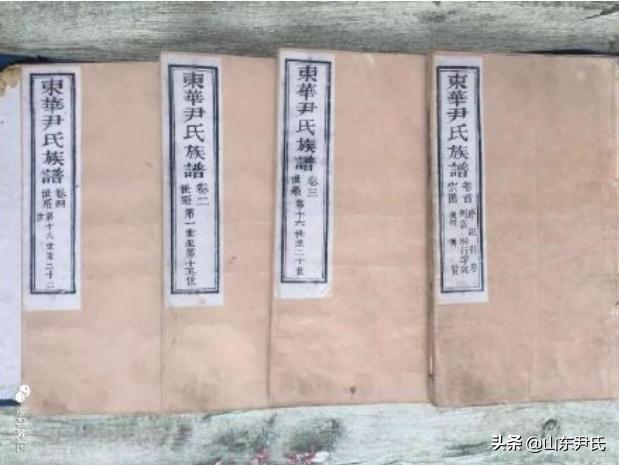 東華尹氏族譜
卷四
世系第十六世至二十二世
東華尹氏族譜
卷二
世系第一世至第十五世
東華尹氏族譜
卷三
世系第十六世至二十世
東華尹氏族譜
卷首
宗圖
头条 @山东尹氏